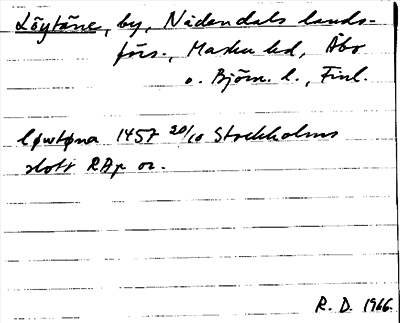 Löytäne, by, Nådendals lands-
förs., Masku hd, Åbo
o. Björn. l., Finl.
løwtøna 1457 20/10 Stockholms
slott RAp or.
R. D. 1966.